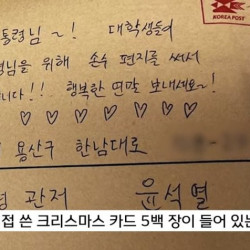 KOREA POST
통령님~! 대학생들이
령님을 위해 손수 편지를 써서
니다!!! 행복한 연말 보내세요~!
용산구 한남대로
령 관저 윤석열
접 쓴 크리스마스 카드 5백 장이 들어 있는